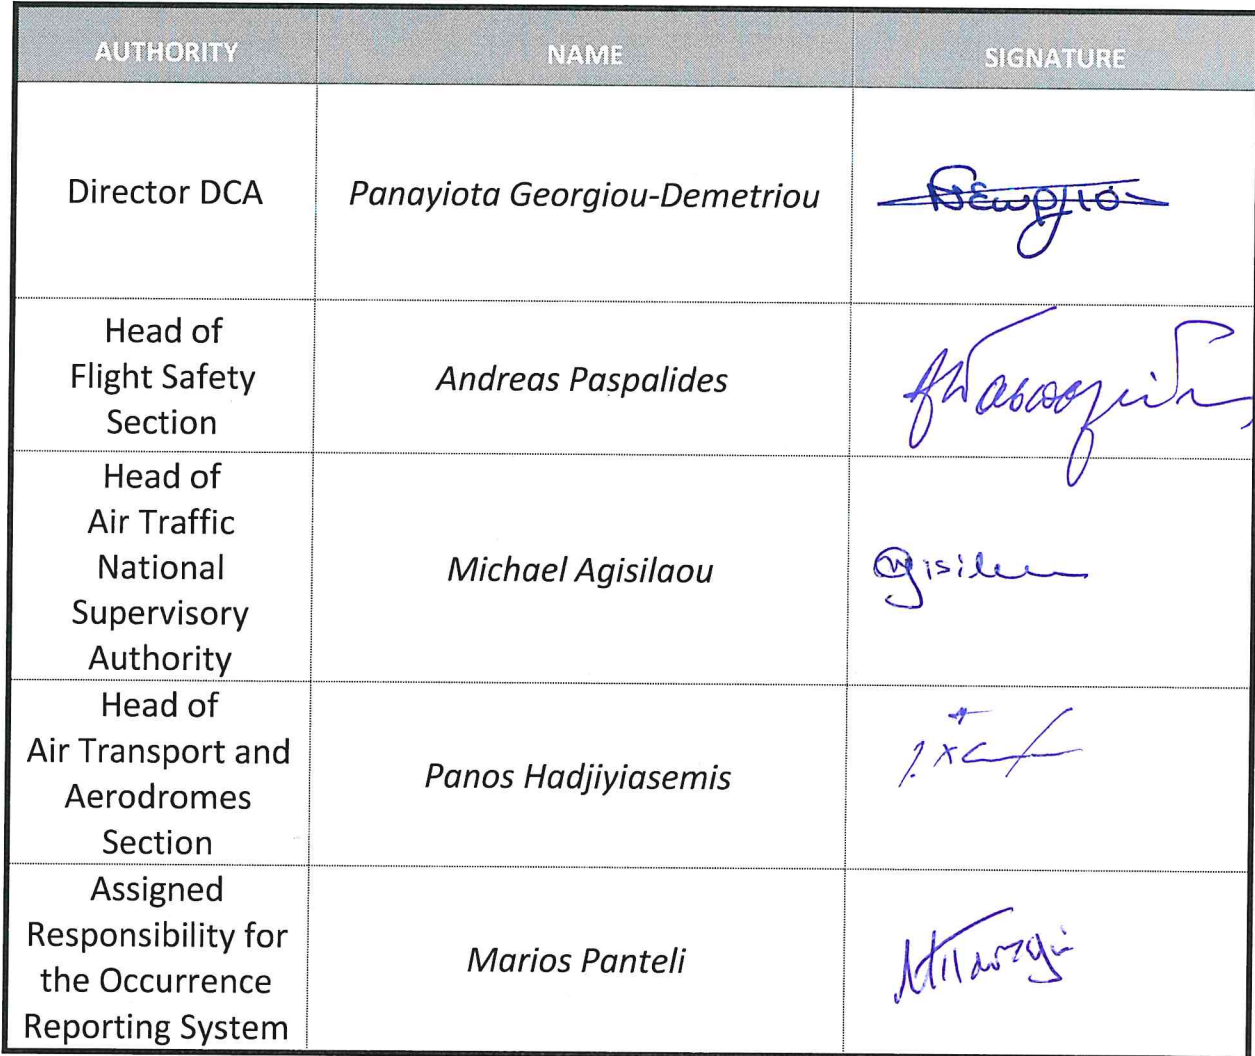 AUTHORITY NAME SIGNATURE
Director DCA Panayiota Georgiou-Demetriou
Head of
Flight Safety
Section
Andreas Paspalides
Head of
Air Traffic
National
Supervisory
Authority
Michael Agisilaou
Head of
Air Transport and
Aerodromes
Section
Panos Hadjiyiasemis
Assigned
Responsibility for
the Occurrence
Reporting System
Marios Panteli